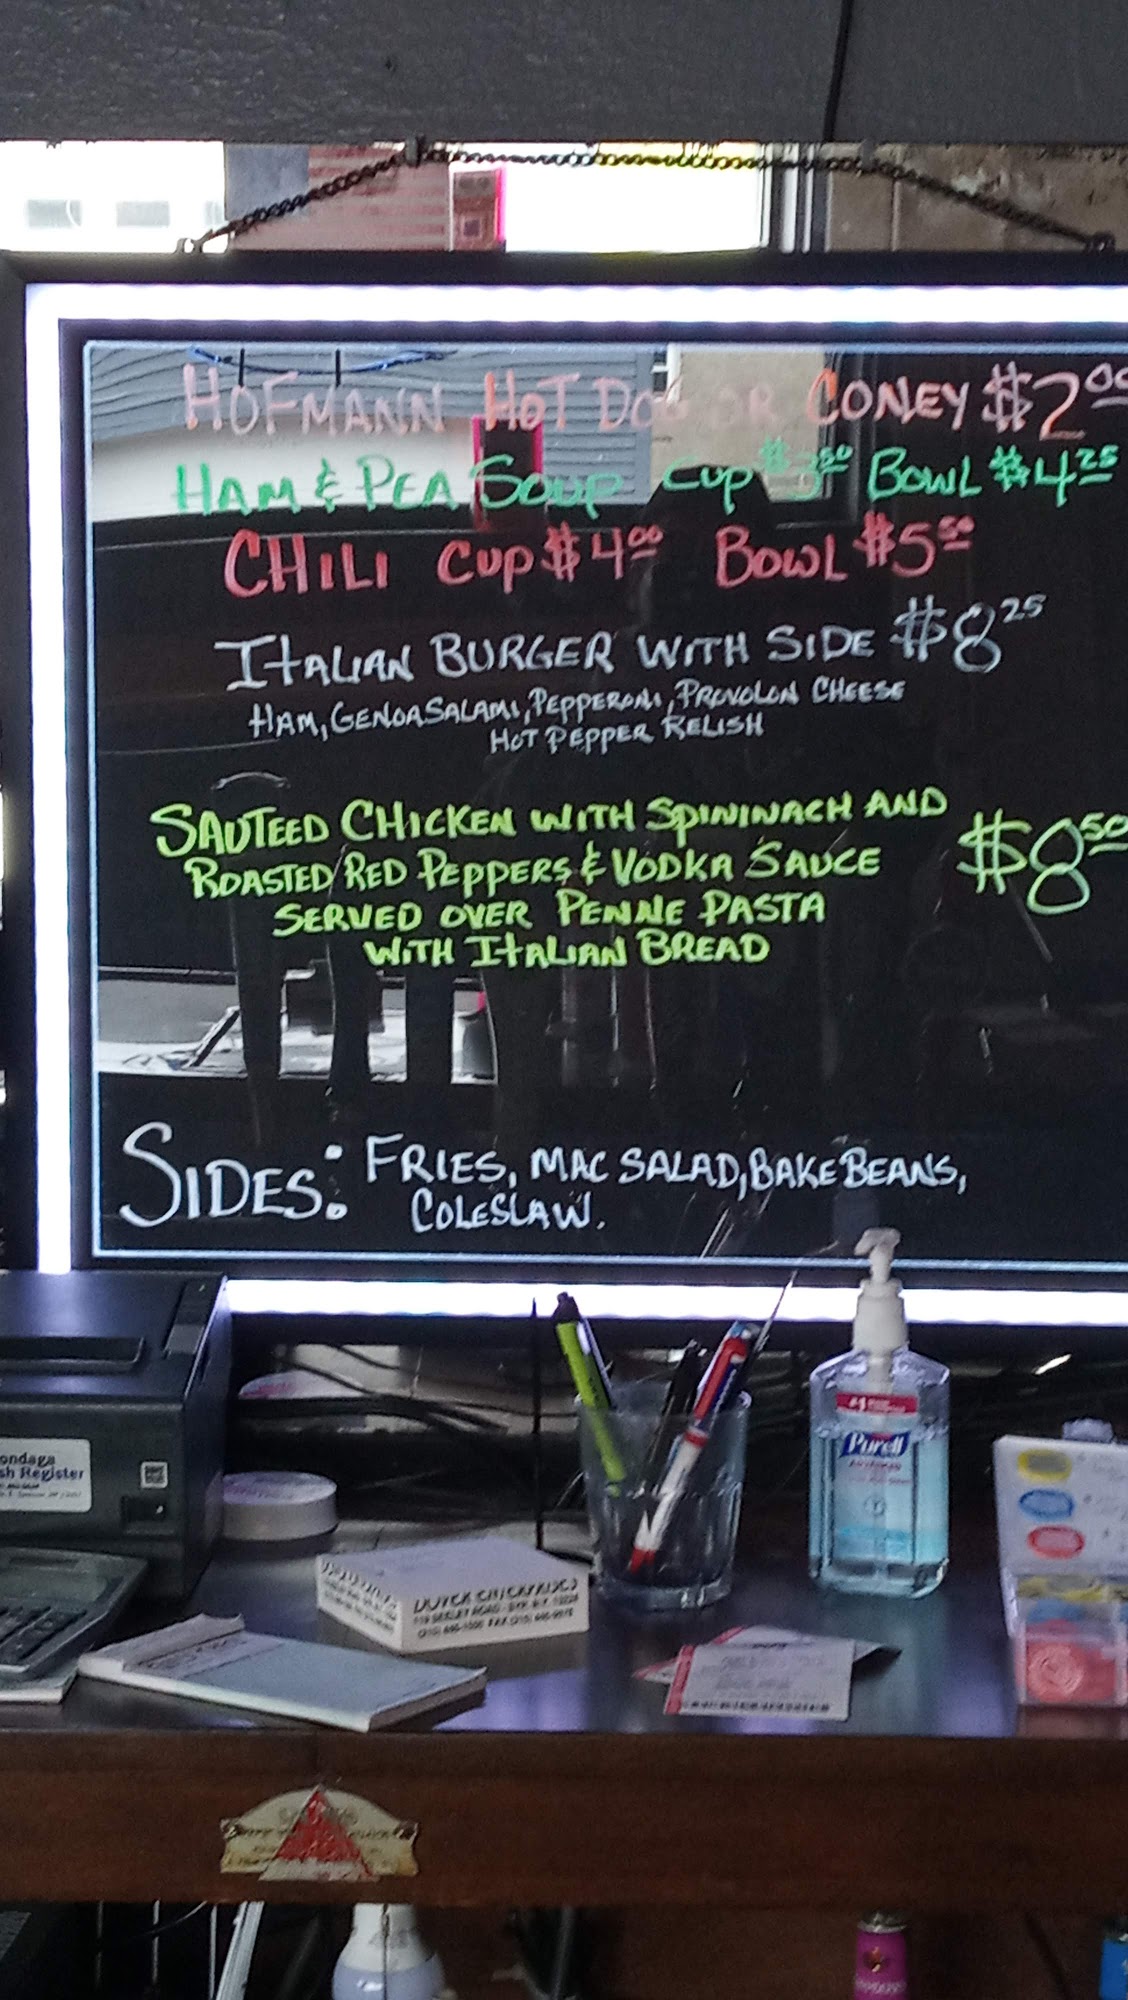 HOFMANN HOT DOG OR CONEY $2.00
HAM & PEA SOUP CUP $3.50 BOWL $4.25
CHILI CUP $4.00 BOWL $5.50
ITALIAN BURGER WITH SIDE $8.25
HAM, GENOA SALAMI, PEPPERONI, PROVOLON CHEESE
HOT PEPPER RELISH
SAUTEED CHICKEN WITH SPININACH AND
ROASTED RED PEPPERS & VODKA SAUCE $8.50
SERVED OVER PENNE PASTA
WITH ITALIAN BREAD
SIDES: FRIES, MAC SALAD, BAKE BEANS,
COLESLAW.
ondaga
sh Register
#1
Purell
ADVANCED